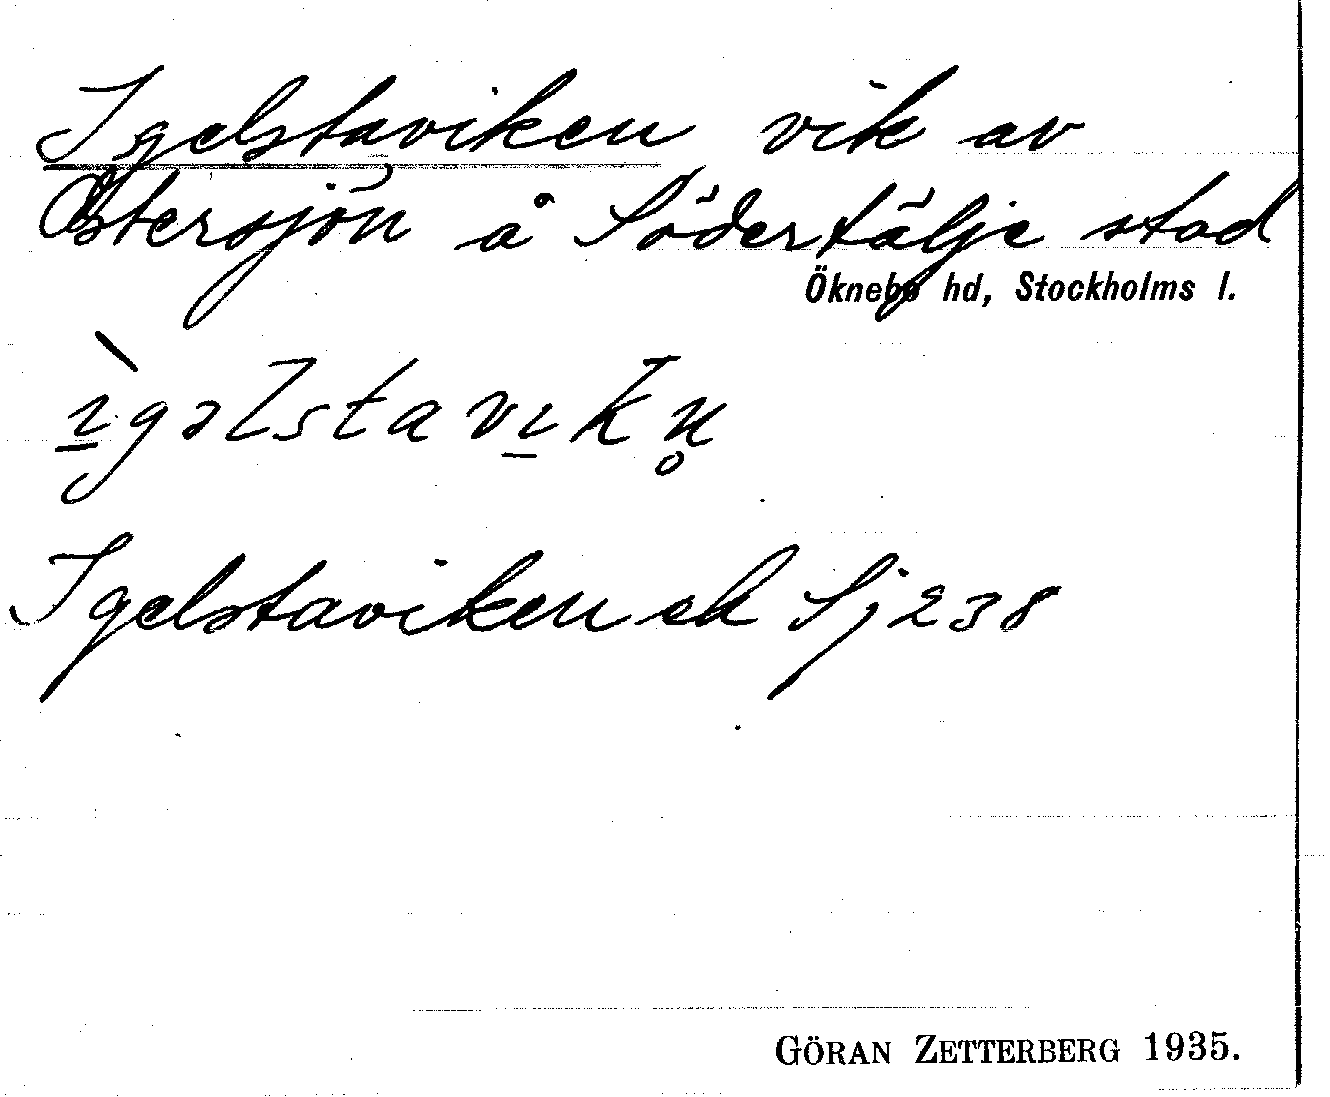 Igelstaviken vik av
Östersjön å Södertälje stad
Öknebo hd, Stockholms l.
ı̠̀gəlstavı̠kn̥
Igelstaviken ek Sj 238
GÖRAN ZETTERBERG 1935.